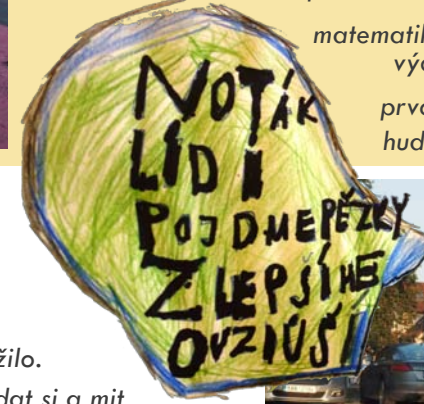 matematik
výc
prvo
hud
NOTÁK
LÍDI
POJDMEPĚZKY
ZLEPŠÍME
OVZIUŠÍ
žilo.
dat si a mit